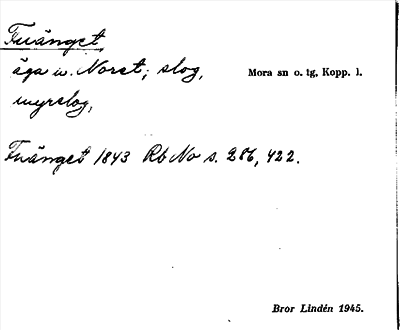 Fuänget
äga u. Noret; slog,
Mora sn o. tg, Kopp. l.
myrslog,
Fuänget 1843 Rb No s. 286, 422.
Bror Lindén 1945.